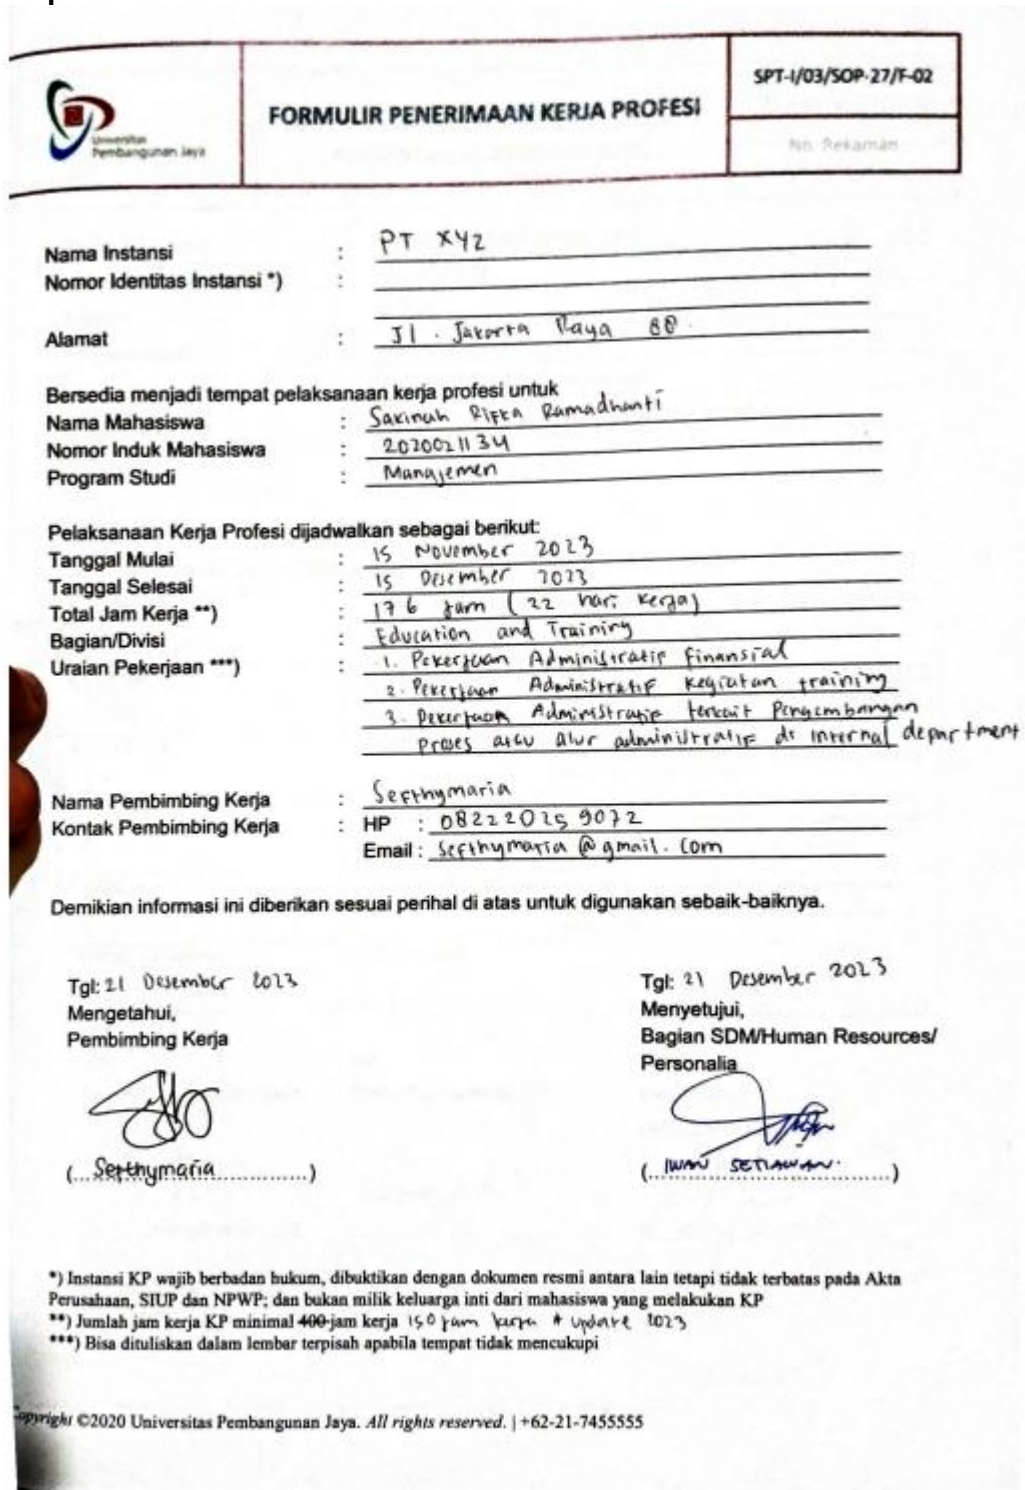 Universitas
Pembangunan Jaya
FORMULIR PENERIMAAN KERJA PROFESI
SPT-I/03/SOP-27/F-02
No. Rekaman
Nama Instansi : PT XYZ
Nomor Identitas Instansi *) :
Alamat : Jl. Jakarta Raya 88.
Bersedia menjadi tempat pelaksanaan kerja profesi untuk
Nama Mahasiswa : Sakinah Rifka Ramadhanti
Nomor Induk Mahasiswa : 2020021134
Program Studi : Manajemen
Pelaksanaan Kerja Profesi dijadwalkan sebagai berikut:
Tanggal Mulai : 15 November 2023
Tanggal Selesai : 15 Desember 2023
Total Jam Kerja **) : 176 jam (22 hari kerja)
Bagian/Divisi : Education and Training
Uraian Pekerjaan ***) : 1. Pekerjaan Administratif Finansial
2. Pekerjaan Administratif kegiatan training
3. Pekerjaan Administratif terkait Pengembangan
proses atau alur administratif di internal department
Nama Pembimbing Kerja : Septhymaria
Kontak Pembimbing Kerja : HP : 082220259072
Email : septhymaria@gmail.com
Demikian informasi ini diberikan sesuai perihal di atas untuk digunakan sebaik-baiknya.
Tgl: 21 Desember 2023
Mengetahui,
Pembimbing Kerja
(...Septhymaria.............)
Tgl: 21 Desember 2023
Menyetujui,
Bagian SDM/Human Resources/
Personalia
(..IWAN SETIAWAN.........)
*) Instansi KP wajib berbadan hukum, dibuktikan dengan dokumen resmi antara lain tetapi tidak terbatas pada Akta
Perusahaan, SIUP dan NPWP; dan bukan milik keluarga inti dari mahasiswa yang melakukan KP
**) Jumlah jam kerja KP minimal 400 jam kerja 150 jam kerja * update 2023
***) Bisa dituliskan dalam lembar terpisah apabila tempat tidak mencukupi
Copyright ©2020 Universitas Pembangunan Jaya. All rights reserved. | +62-21-7455555